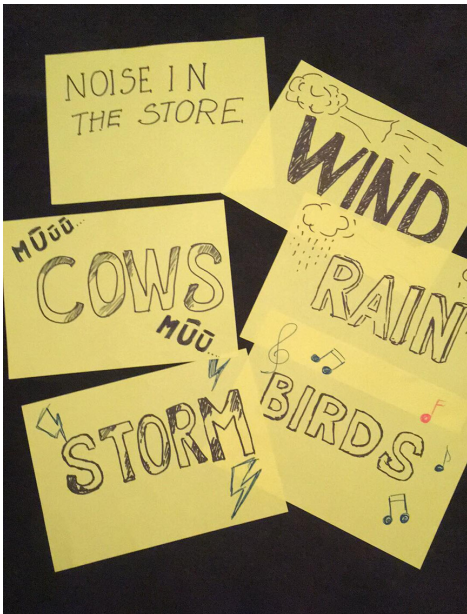 NOISE IN
THE STORE
WIND
MŪŪŪ...
COWS
MŪŪ...
RAIN
STORM
BIRDS